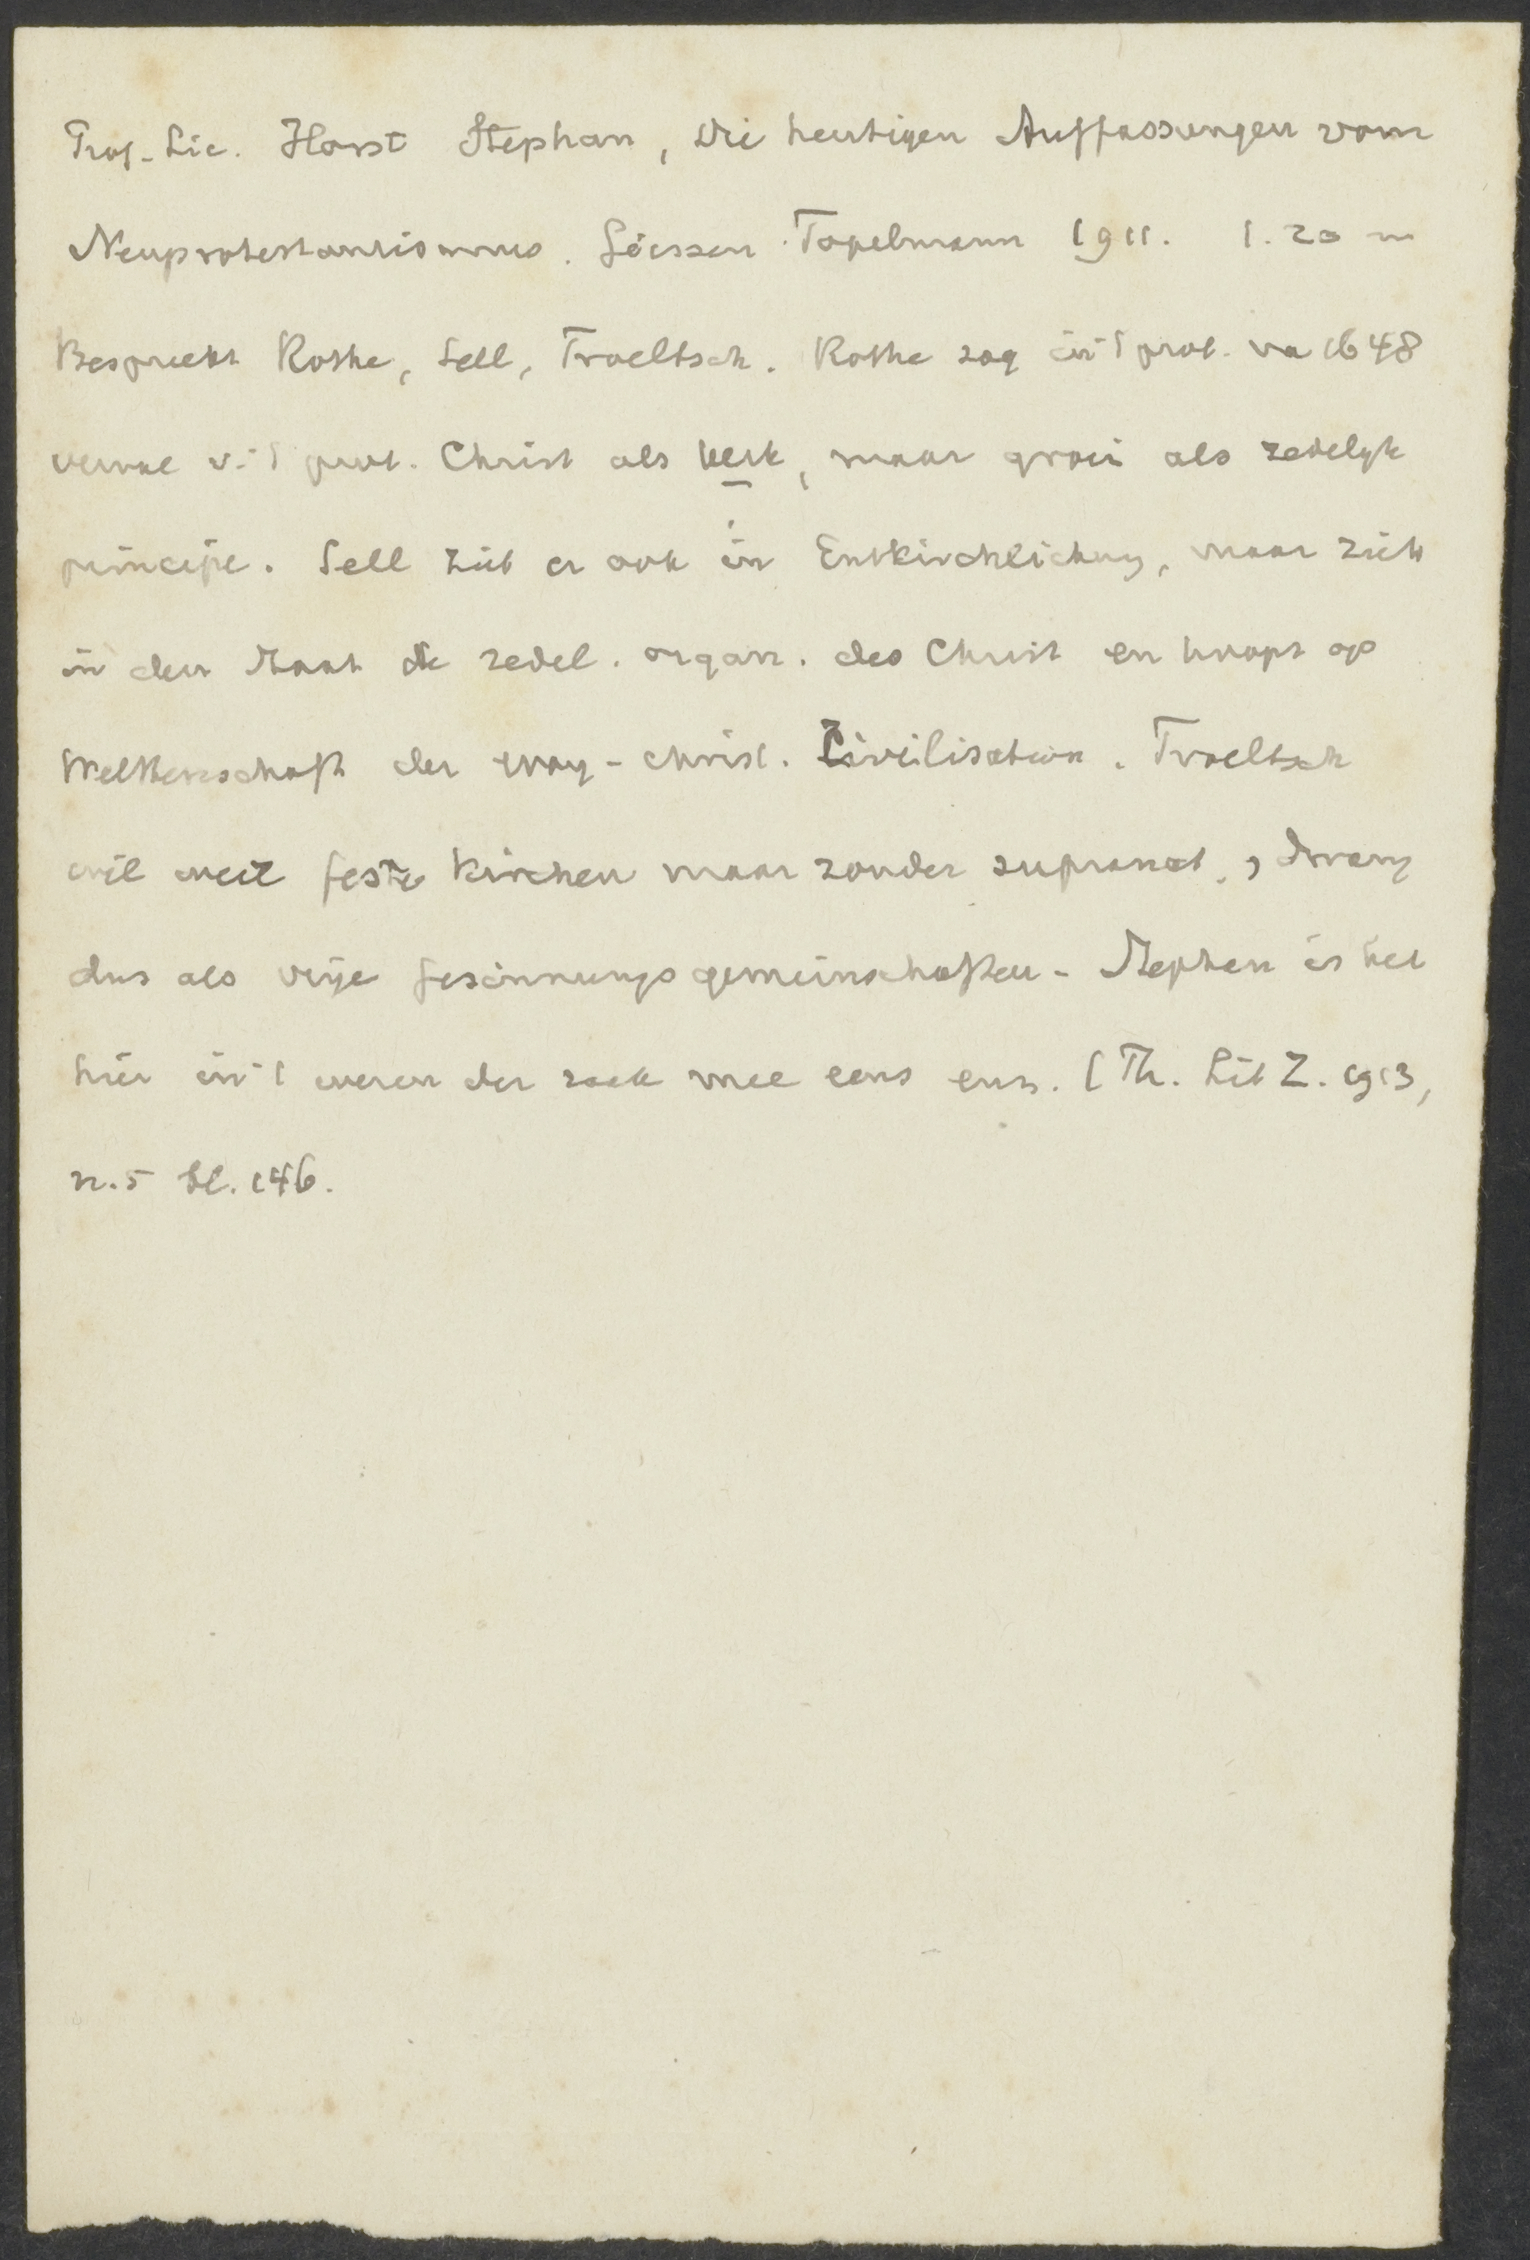 Prof. Lic. Horst Stephan, Die heutigen Auffassungen vom
Neuprotestantismus. Giessen Topelmann 1911. 1.20 m
Bespreekt Rothe, Sell, Troeltsch. Rothe zag in 't prot. na 1648
verval v. 't prot. Christ als kerk, maar groei als zedelyk
principe. Sell ziet er ook in Entkirchlichung, maar ziet
in den Staat de zedel. organ. des Christ en hoopt op
Weltherrschaft der evang-christ. Civilisation. Troeltsch
wil weer feste Kirchen maar zonder supranat., dwang
dus als vrije Gesinnungsgemeinschaften - Stephan is het
hier in 't wezen der zaak mee eens enz. (Th. Lit Z. 1913,
n. 5 bl. 146.